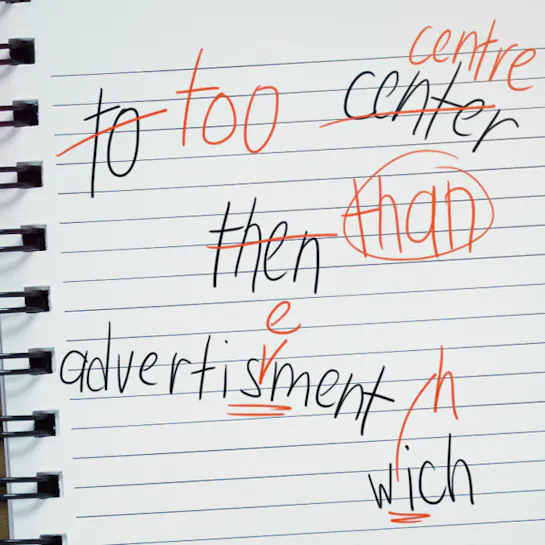 to too center centre
then than
advertisment e
wich h